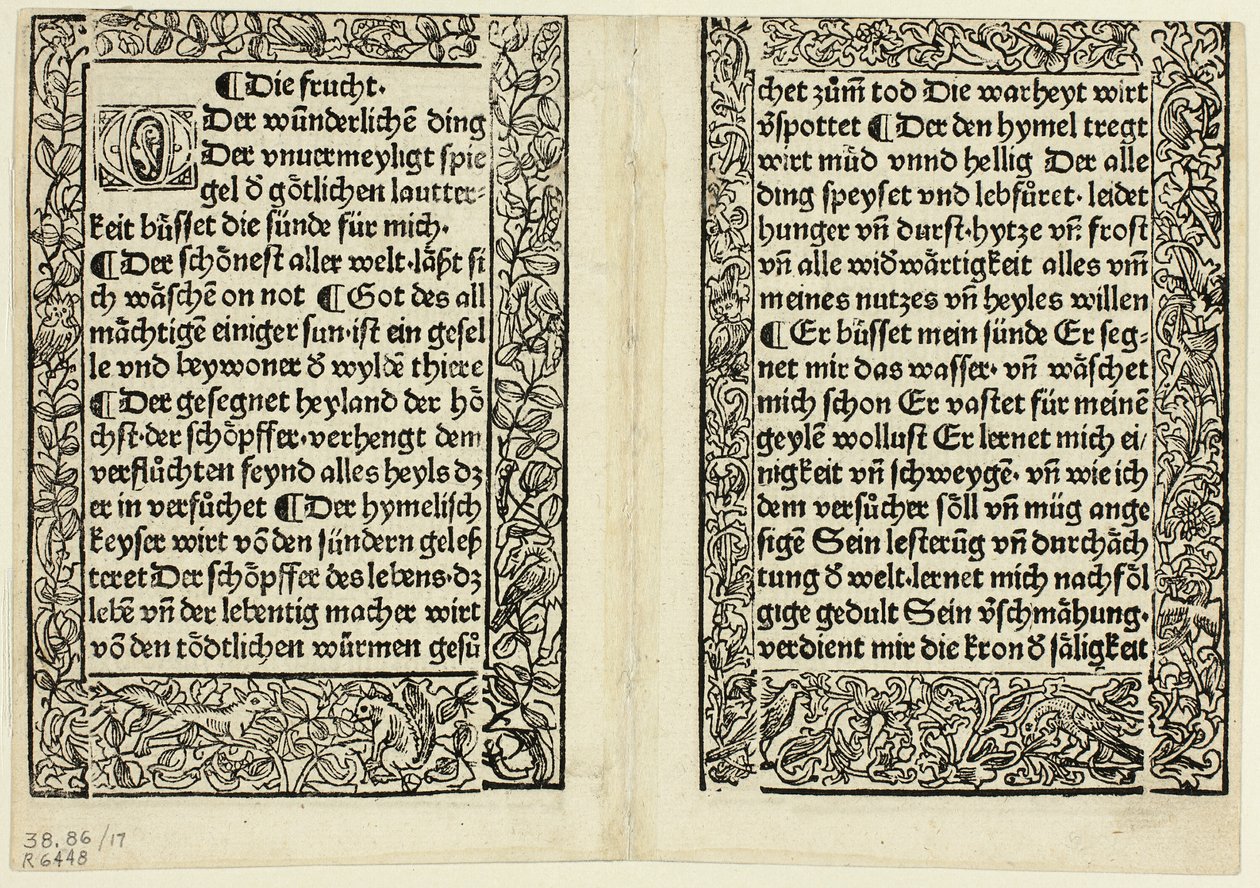 ¶Die frucht.
O Der wūnderlichē ding
Der vnuermeyligt spie
gel d̄ gȯtlichen lautter⸗
keit bůsset die sünde für mich.
¶Der schȯnest aller welt·låßt si
ch wåschē on not ¶Got des all
måchtigē einiger sun·ist ein gesel
le vnd beywoner d̄ wyldē thiere
¶Der gesegnet heyland der hȯ
chst·der schȯpffer·verhengt dem
verflůchten feynd alles heyls dz
er in versůchet ¶Der hymelisch
keyser wirt vō den sündern geleß
teret Der schȯpffer des lebens·dz
lebē vn̄ der lebentig macher wirt
vō den tȯdtlichen würmen gesů
chet zům̄ tod Die warheyt wirt
v̄spottet ¶Der den hymel tregt
wirt mūd vnnd hellig Der alle
ding speyset vnd lebfůret· leidet
hunger vn̄ durst·hytze vn̄ frost
vn̄ alle widwårtigkeit alles vm̄
meines nutzes vn̄ heyles willen
¶Er bůsset mein sünde Er seg⸗
net mir das wasser· vn̄ wåschet
mich schon Er vastet für meinē
geylē wollust Er lernet mich ei/
nigkeit vn̄ schweygē· vn̄ wie ich
dem versůcher sȯll vn̄ müg ange
sigē Sein lesterūg vn̄ durchåch
tung d̄ welt·lernet mich nachfȯl
gige gedult Sein v̄schmåhung·
verdient mir die kron d̄ såligkeit
38.86/17
R6448